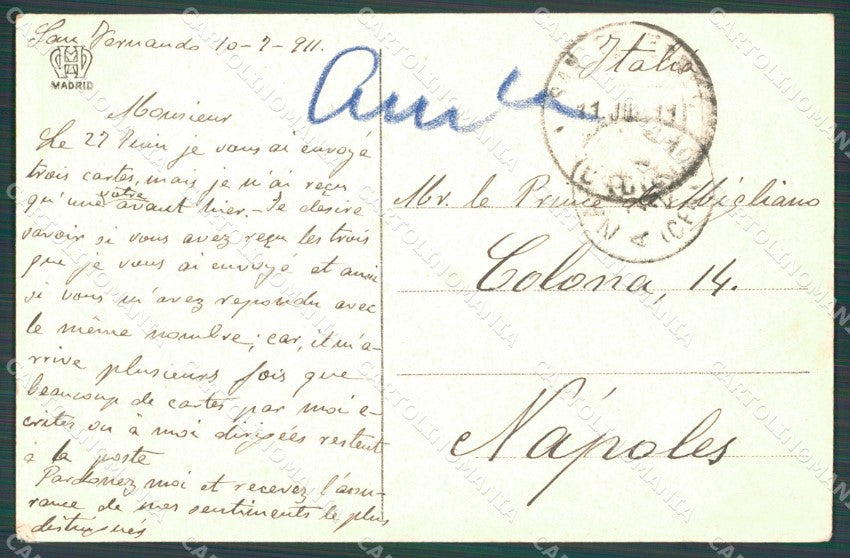 San Fernando 10-7-911.
MADRID
Monsieur
Le 27 Juin je vous ai envoyé
trois cartes, mais je n'ai reçu
votre
qu'une avant hier. - Je desire
savoir si vous avez reçu les trois
que je vous ai envoyé et aussi
si vous m'avez repondu avec
le même nombre; car, il m'a-
rrive plusieurs fois que
beaucoup de cartes par moi é-
crites ou à moi dirigées restent
à la poste
Pardonez moi et recevez l'assu-
rance de mes sentiments le plus
distingués
Italia
11 JUL 11
Mr. le Prince Migliano
Colona, 14.
Nápoles
CARTOLINOMANIA